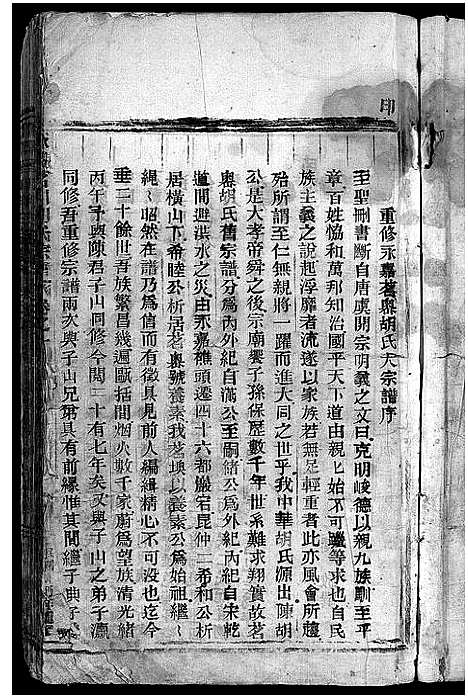 印
重修永嘉茗嶴胡氏大宗譜序
至聖刪書斷自唐虞開宗明義之文曰克明峻德以親九族馴至平
章百姓協和萬邦知治國平天下道由親始不可躐等求也自民
族主義之說起浮靡者流遂以家族若無足輕重者此亦風會所趨
殆所謂至仁無親將一躍而進大同之世乎我中華胡氏源出陳胡
公是大孝帝舜之後宗廟饗子孫保歷數千年世系難求翔實故茗
嶴胡氏舊宗譜分為內外紀自滿公至嗣鍇公為外紀內紀自宋乾
道間避洪水之災由永嘉雒頭遷四十六都巖宕毘仲二希和公析
居橫山下希睦公析居茗嶴號養素我茗墺以養素公為始祖繼繼
繩繩昭然在譜乃為信而有徵具見前人編緝精心不可沒也迄今
垂二十餘世吾族繁昌幾遍甌括間烟火數千家蔚為望族清光緒
丙午予與陳君子山同修今閱二十有七年矣又與子山之弟子灝
同修吾重修宗譜兩次與子山兄弟具有前緣惟其間繼子典